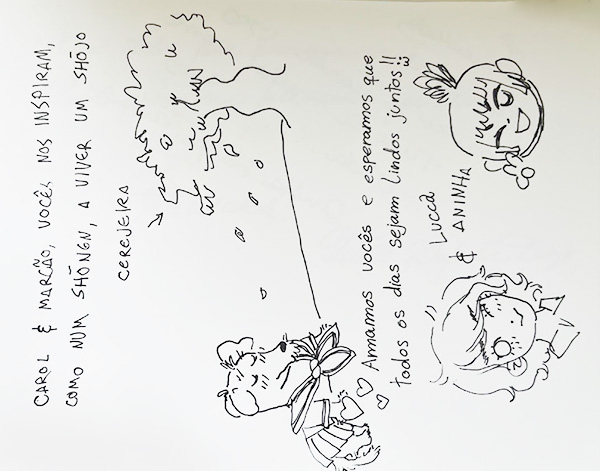 CAROL & MARCÃO, VOCÊS NOS INSPIRAM,
COMO NUM SHŌNEN, A VIVER UM SHŌJO
CEREJEIRA
Amamos vocês e esperamos que
todos os dias sejam lindos juntos!!
LUCCA
& ANINHA